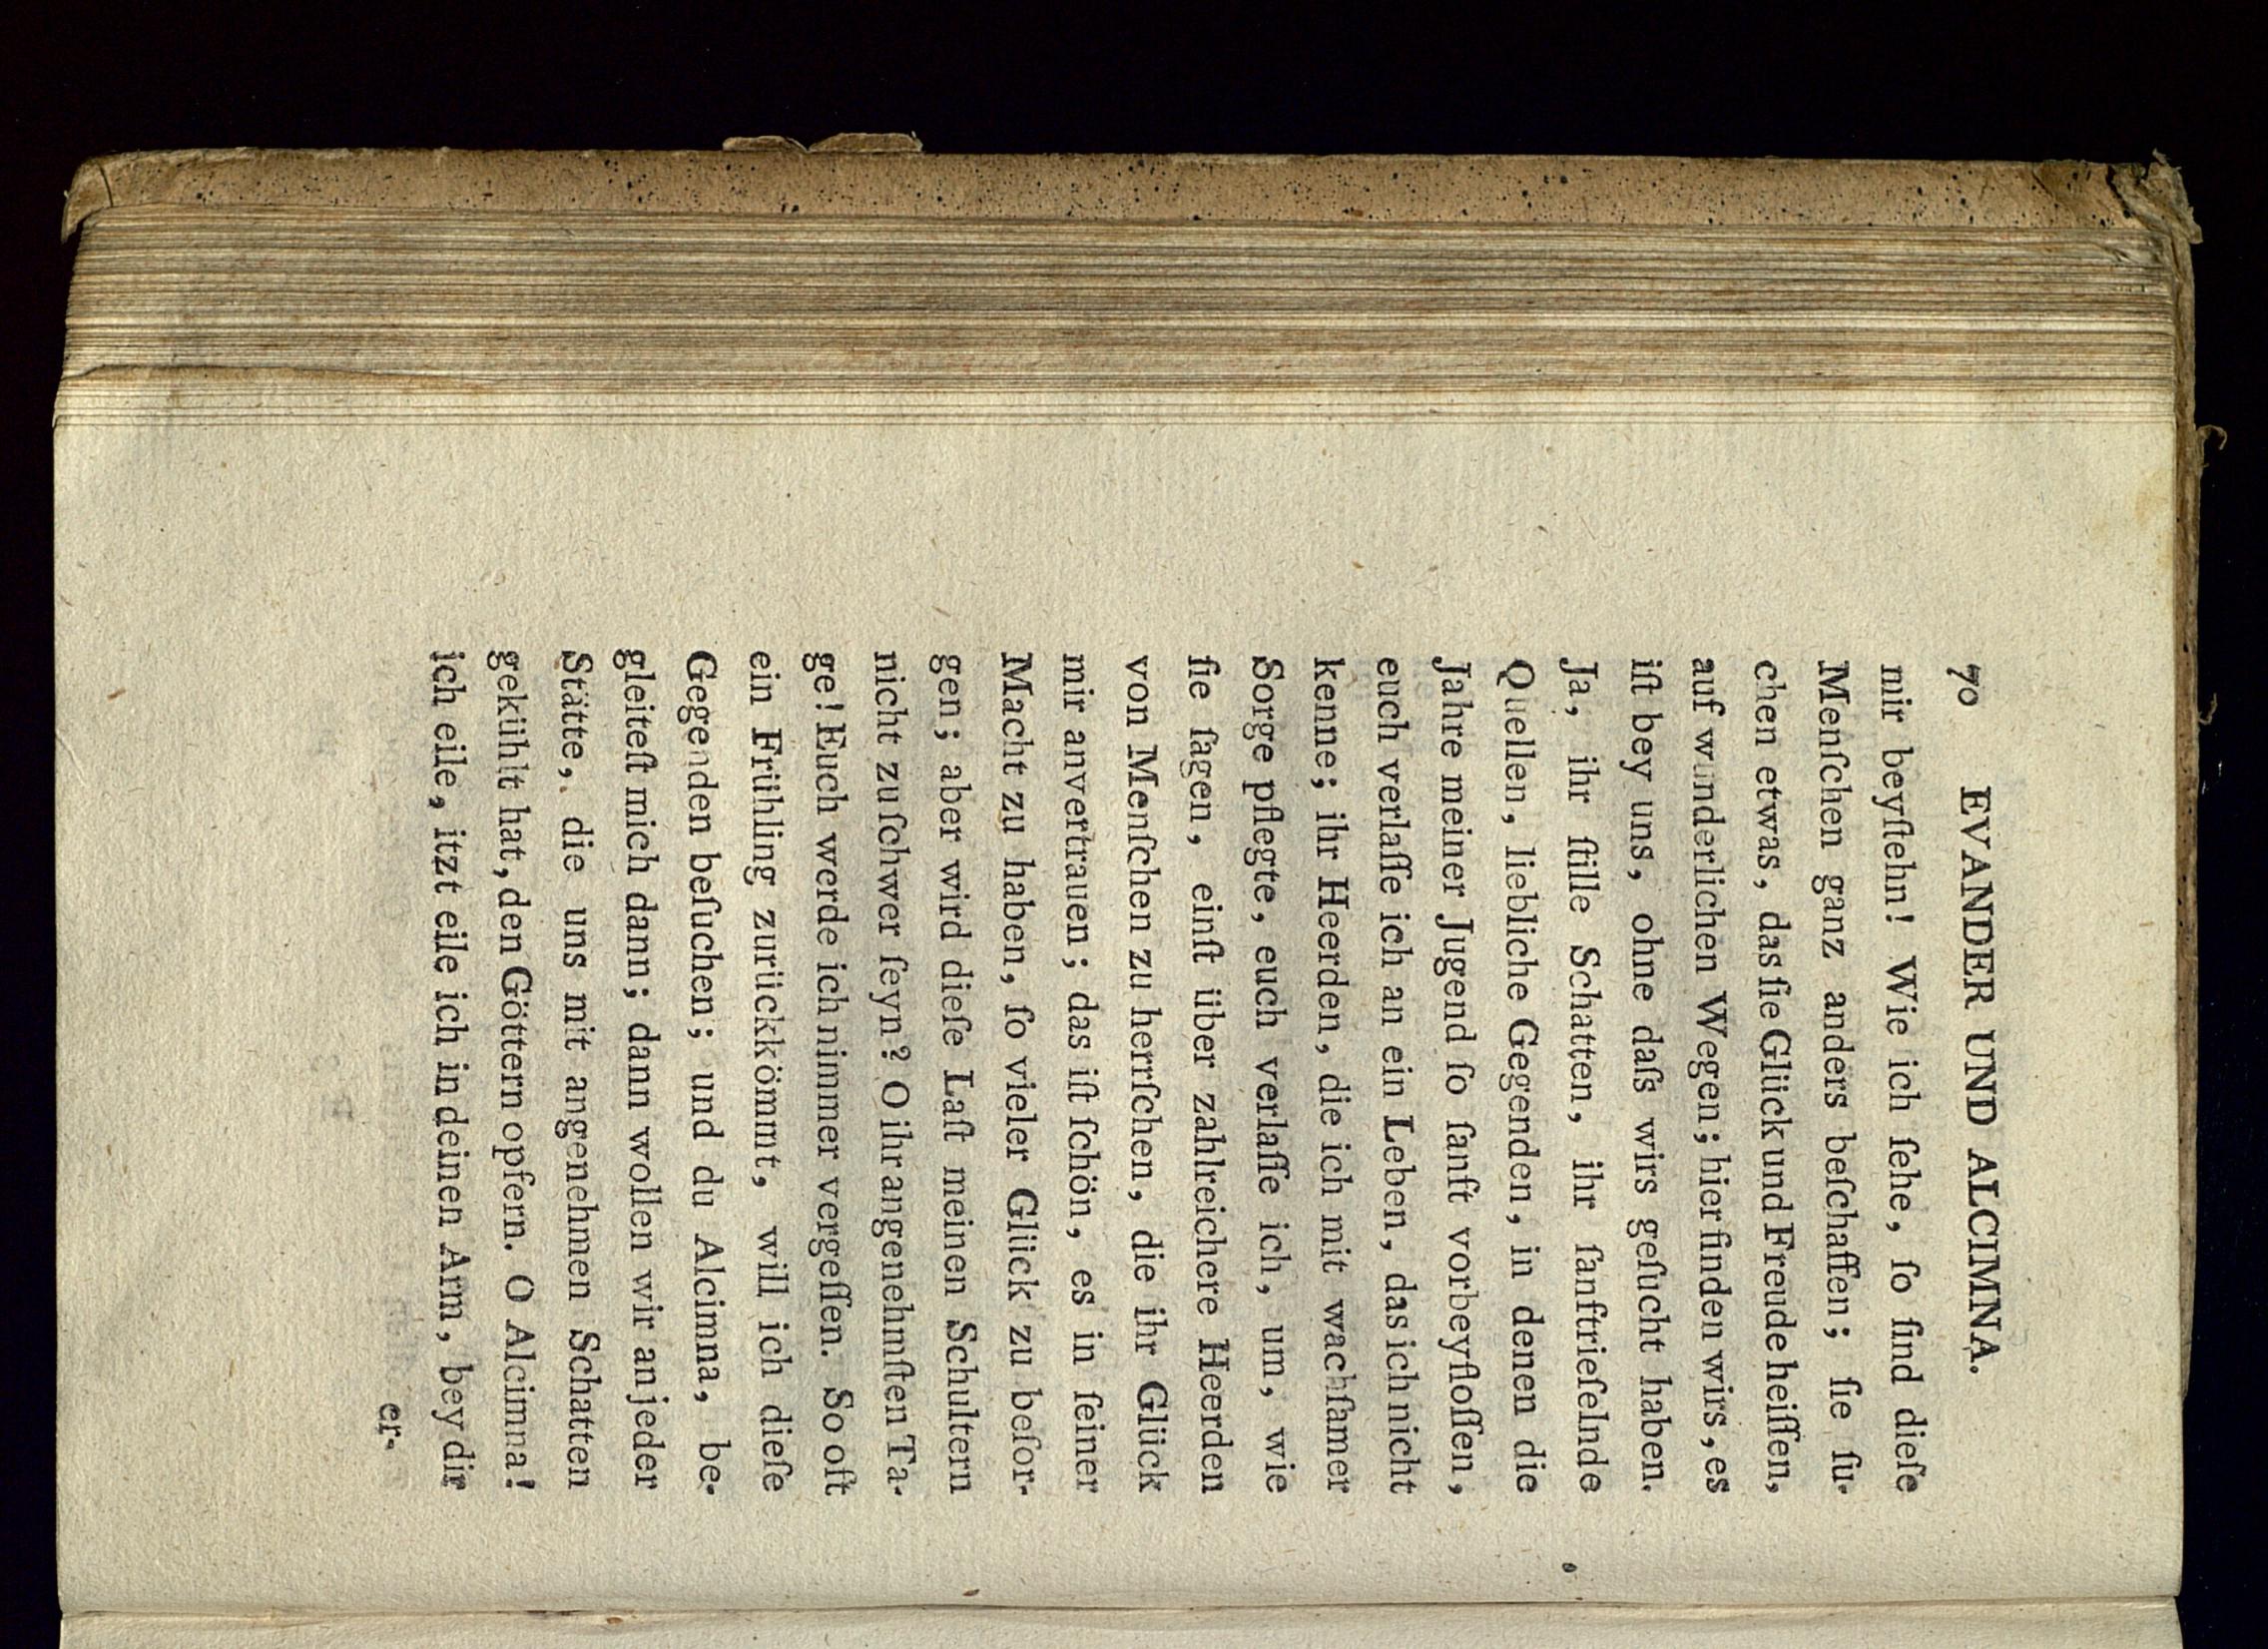 70 EVANDER UND ALCIMNA.
mir beyſtehn! Wie ich ſehe, ſo ſind dieſe
Menſchen ganz anders beſchaffen; ſie ſu-
chen etwas, das ſie Glück und Freude heiſſen,
auf wunderlichen Wegen; hier finden wirs, es
iſt bey uns, ohne daſs wirs geſucht haben.
Ja, ihr ſtille Schatten, ihr ſanftrieſelnde
Quellen, liebliche Gegenden, in denen die
Jahre meiner Jugend ſo ſanft vorbeyfloſſen,
euch verlaſſe ich an ein Leben, das ich nicht
kenne; ihr Heerden, die ich mit wachſamer
Sorge pflegte, euch verlaſſe ich, um, wie
ſie ſagen, einſt über zahlreichere Heerden
von Menſchen zu herrſchen, die ihr Glück
mir anvertrauen; das iſt ſchön, es in ſeiner
Macht zu haben, ſo vieler Glück zu beſor-
gen; aber wird dieſe Laſt meinen Schultern
nicht zu ſchwer ſeyn? O ihr angenehmſten Ta-
ge! Euch werde ich nimmer vergeſſen. So oft
ein Frühling zurückkömmt, will ich dieſe
Gegenden beſuchen; und du Alcimna, be-
gleiteſt mich dann; dann wollen wir an jeder
Stätte, die uns mit angenehmen Schatten
gekühlt hat, den Göttern opfern. O Alcimna!
ich eile, itzt eile ich in deinen Arm, bey dir
er-